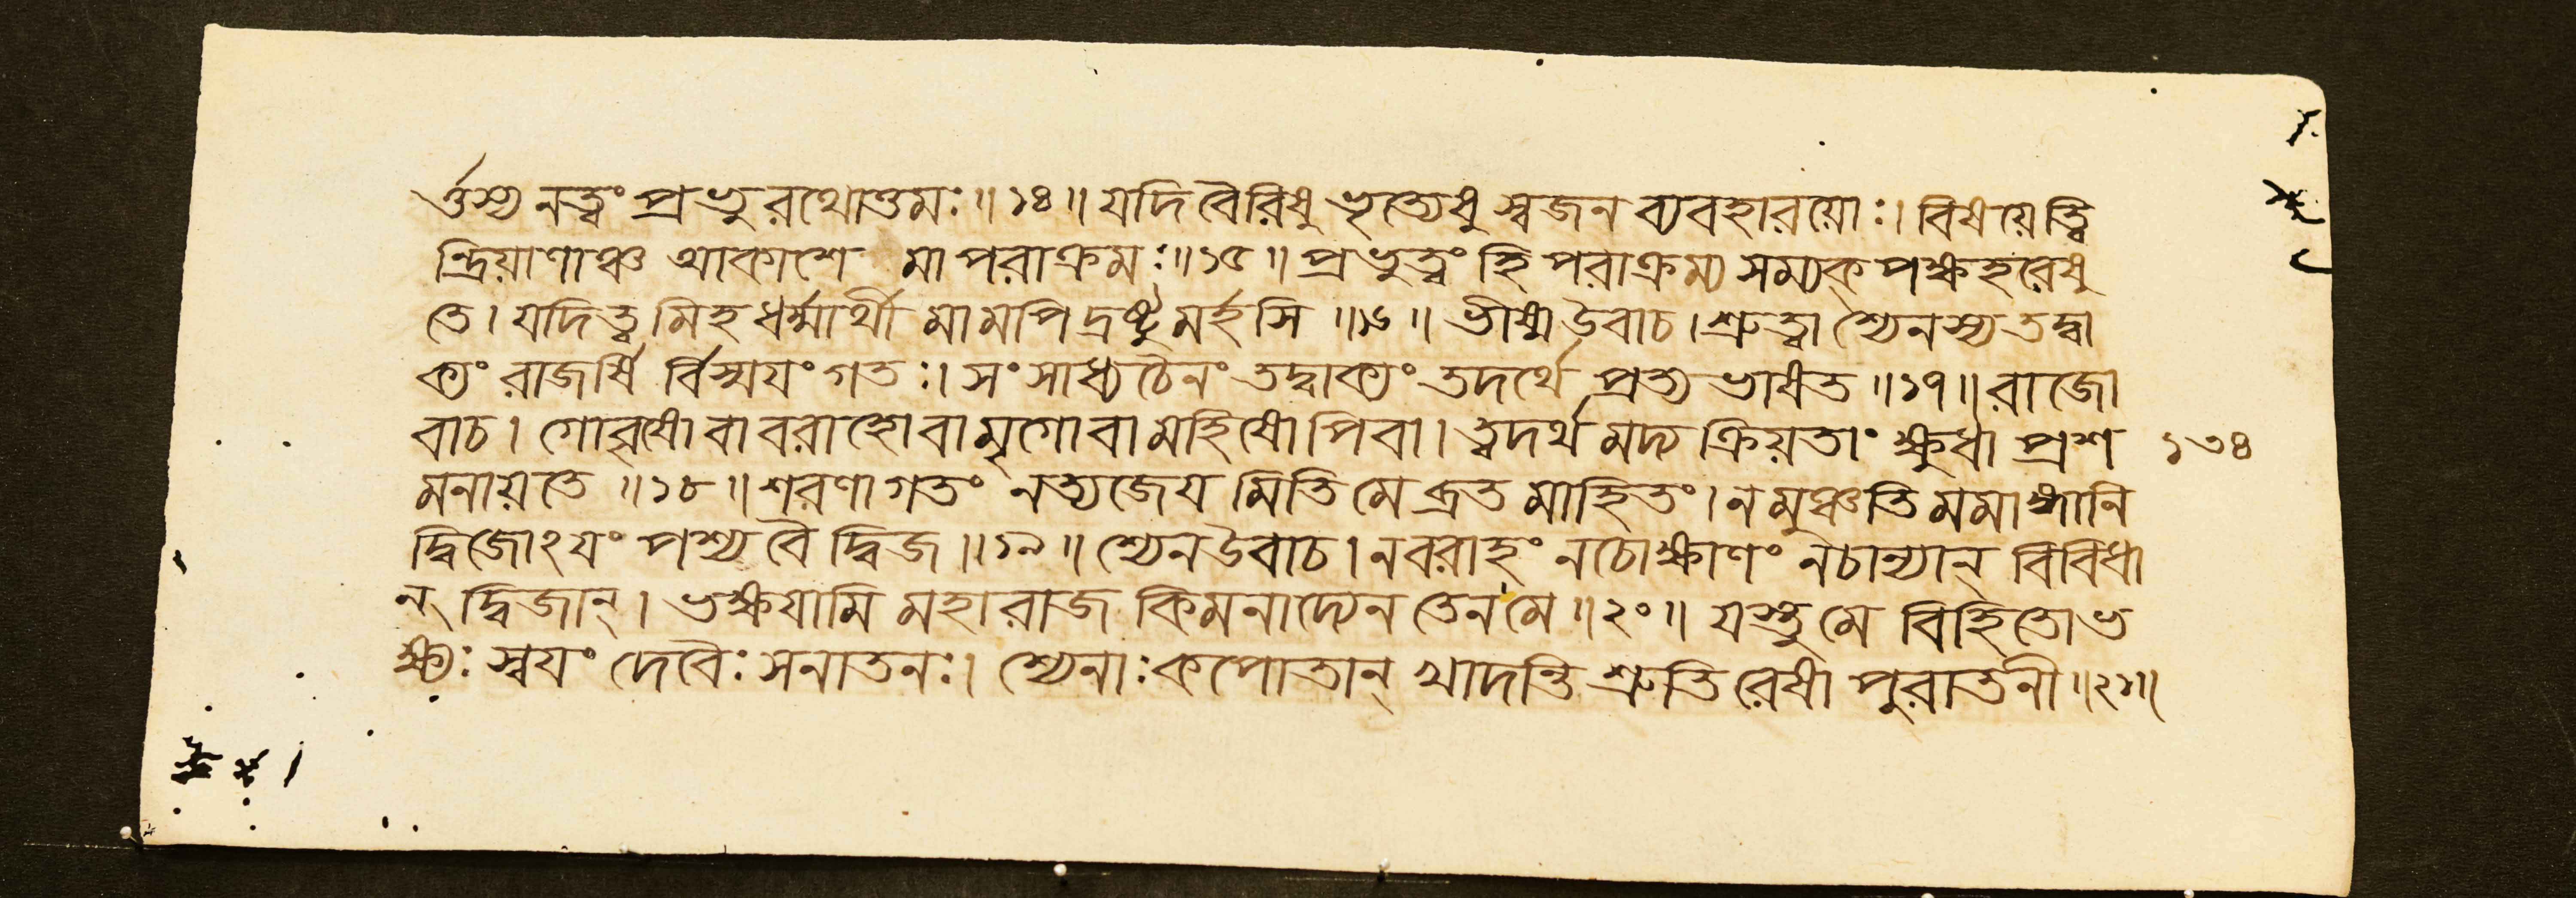 র্ত্তস্য নত্বং প্রভুরথোত্তমঃ॥১৪॥যদিবৈরিষু ভৃত্যেষু স্বজন ব্যবহারয়োঃ।বিষয়েত্বি
ন্দ্রিয়াণাঞ্চ আকাশে মাপরাক্রমঃ॥১৫॥প্রভুত্বং হি পরাক্রম্য সম্যক্ পক্ষহরেষু
তে।যদিত্ব মিহ ধর্ম্মার্থী মামপি দ্রষ্টুমর্হসি॥১৬॥ভীষ্মউবাচ।শ্রুত্বা শ্যেনস্য তদ্বা
ক্যং রাজর্ষি র্বিস্ময়ং গতঃ।সংসাধ্যচৈনং তদ্বাক্যং তদর্থে প্রত্য ভাষত॥১৭॥রাজো
বাচ।গোবৃষো বা বরাহোবা মৃগোবা মহিষোপিবা।ত্বদর্থ মদ্য ক্রিয়তাং ক্ষুধা প্রশ ১৩৪
মনায়তে॥১৮॥শরণাগতং নত্যজেয় মিতি মে ব্রত মাহিতং।ন মুঞ্চতি মমাঙ্গানি
দ্বিজোঽয়ং পশ্য বৈ দ্বিজ॥১৯॥শ্যেনউবাচ।নবরাহং নচোক্ষাণং নচান্যান্ বিবিধা
ন্ দ্বিজান্।ভক্ষয়ামি মহারাজ কিমনাদ্যেন তেন মে॥২০॥যস্তু মে বিহিতো ভ
ক্ষ্যঃ স্বয়ং দেবৈঃ সনাতনঃ।শ্যেনাঃ কপোতান্ খাদন্তি শ্রুতি রেষা পুরাতনী॥২১॥